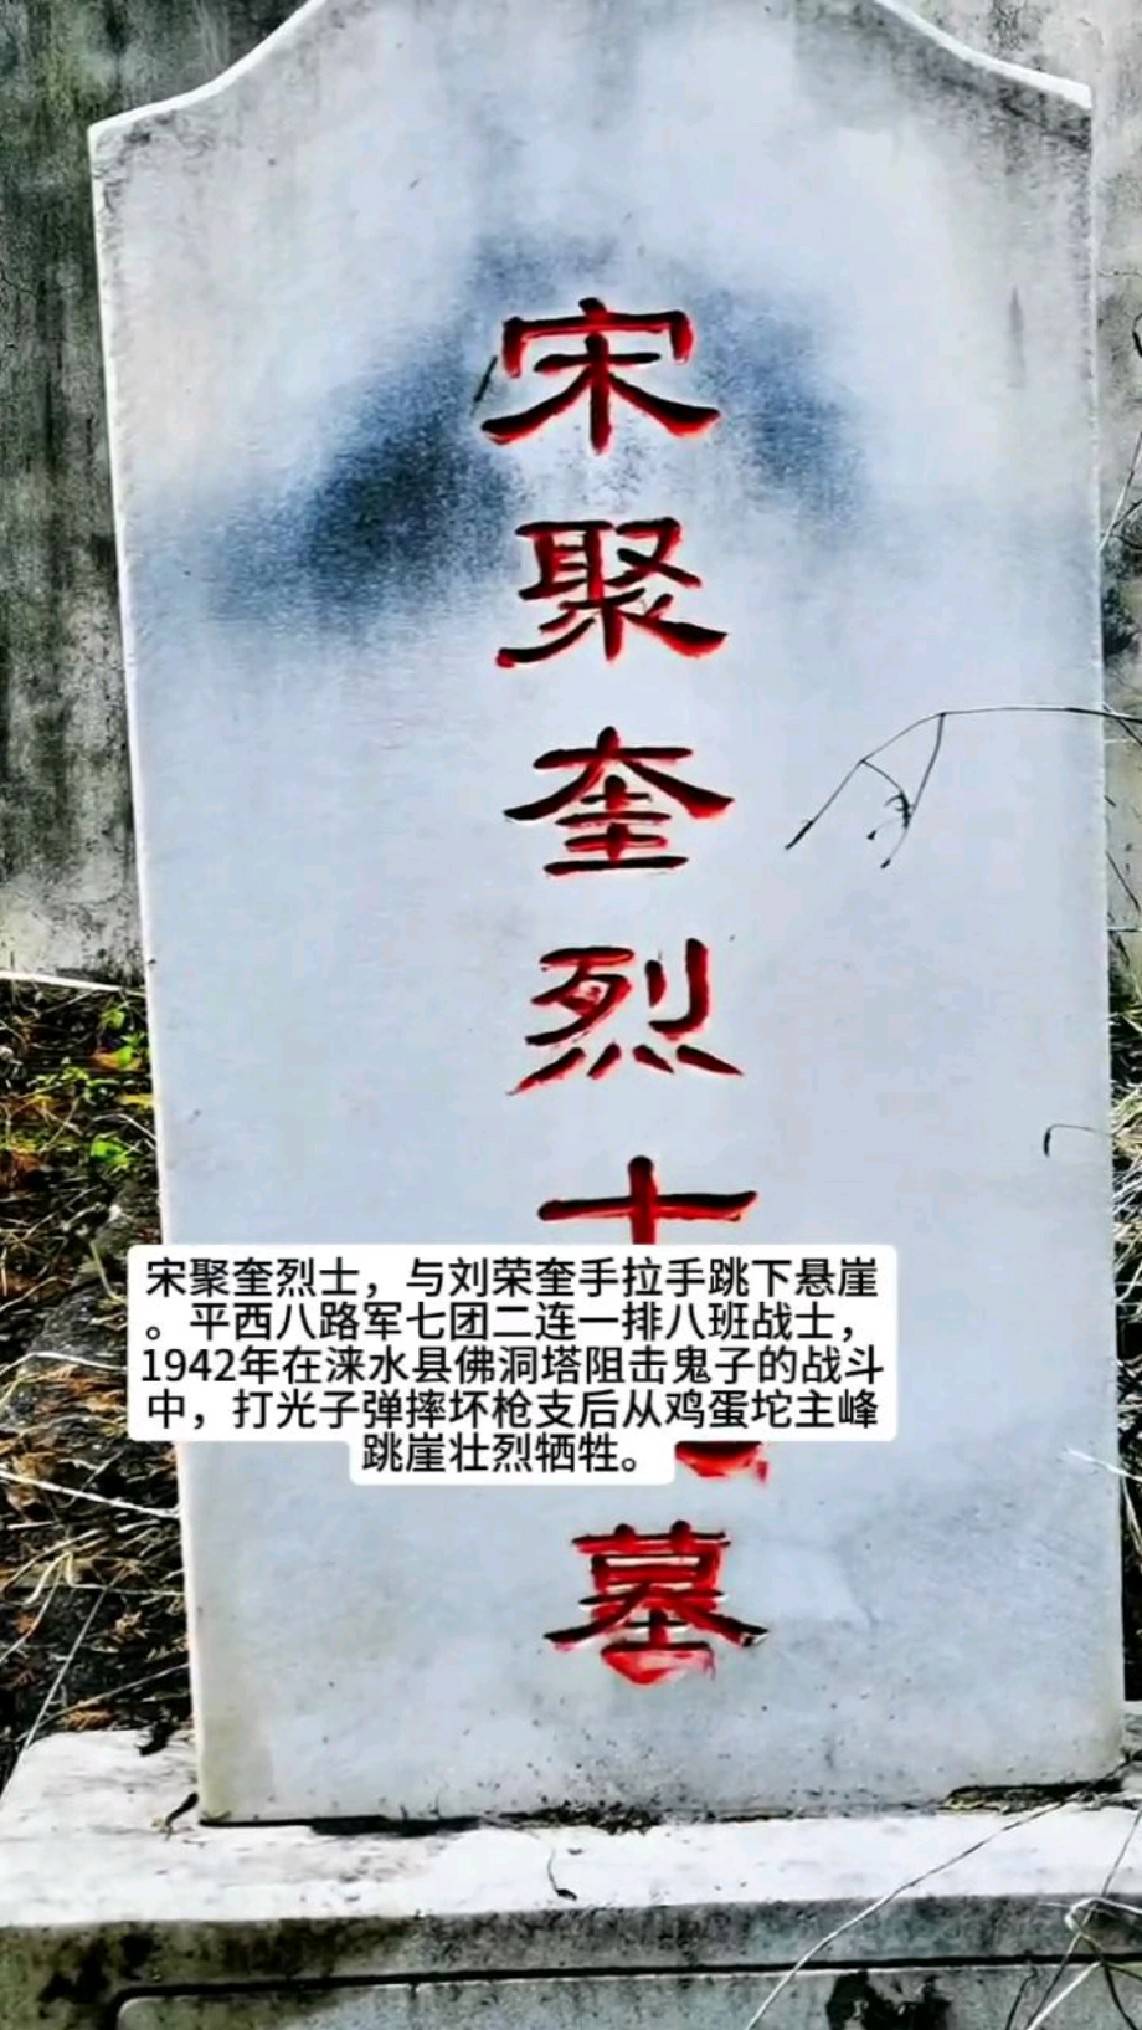 宋聚奎烈士墓
宋聚奎烈士，与刘荣奎手拉手跳下悬崖
。平西八路军七团二连一排八班战士，
1942年在涞水县佛洞塔阻击鬼子的战斗
中，打光子弹摔坏枪支后从鸡蛋坨主峰
跳崖壮烈牺牲。